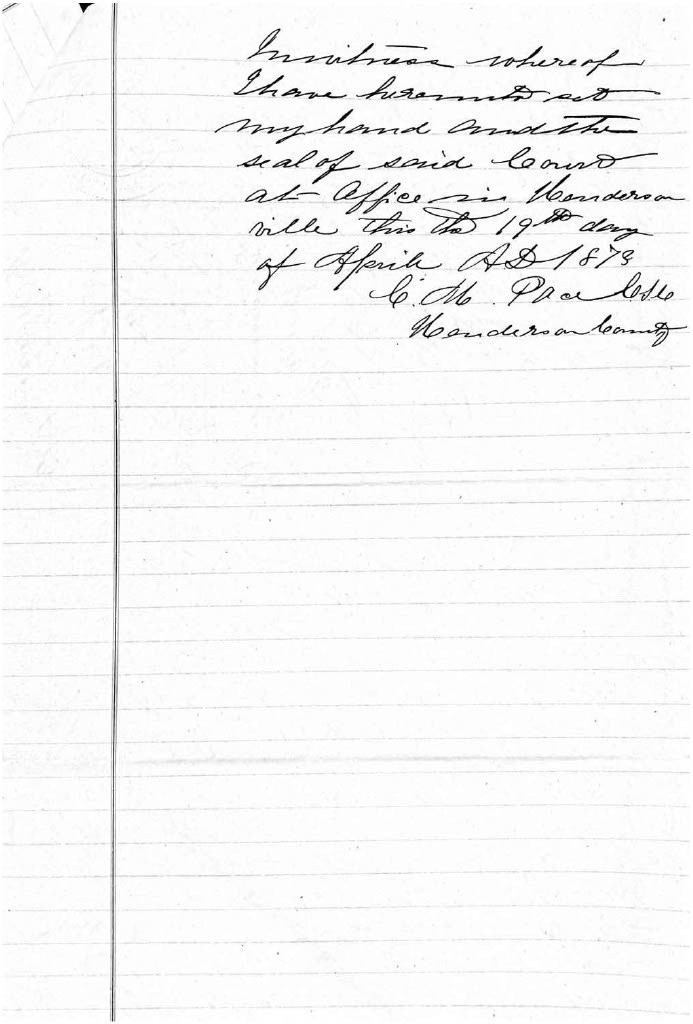 In witness whereof
I have hereunto set
my hand and the
seal of said Court
at Office in Henderson
ville this the 19th day
of April AD 1873
C. M. Pace CSC
Henderson County